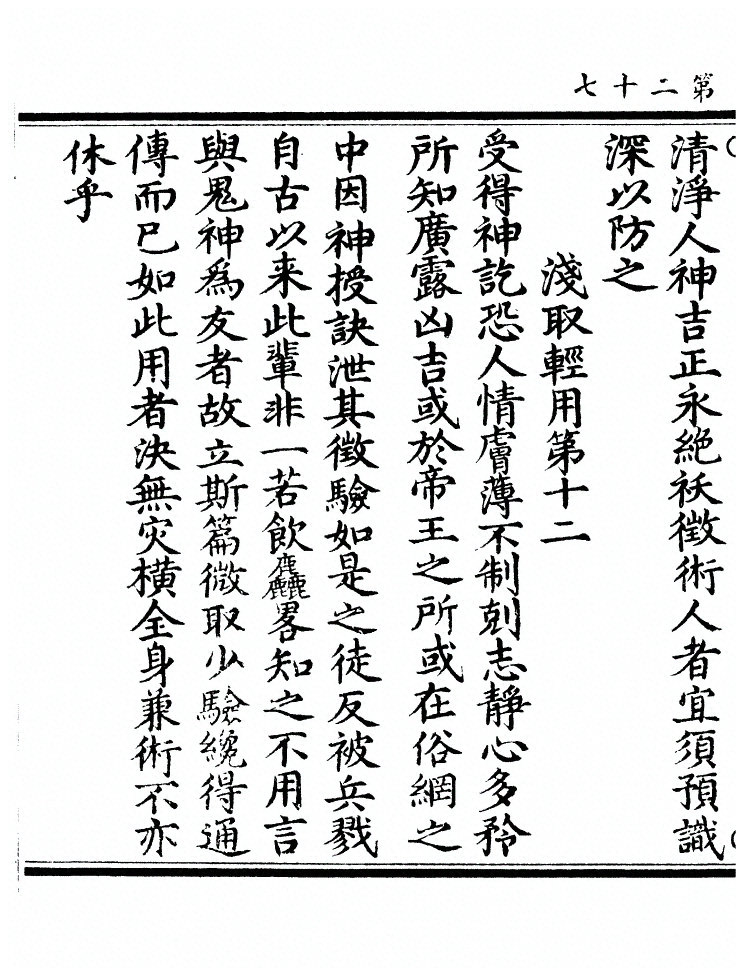 第二十七
清淨人神吉正永絶祅徵術人者宜須預識
深以防之
淺取輕用第十二
受得神訖恐人情膚薄不制剋志靜心多矜
所知廣露凶吉或於帝王之所或在俗網之
中因神授訣泄其徵驗如是之徒反被兵戮
自古以来此輩非一若飲麤畧知之不用言
與鬼神為友者故立斯篇微取少驗纔得通
傳而已如此用者決無灾橫全身兼術不亦
休乎